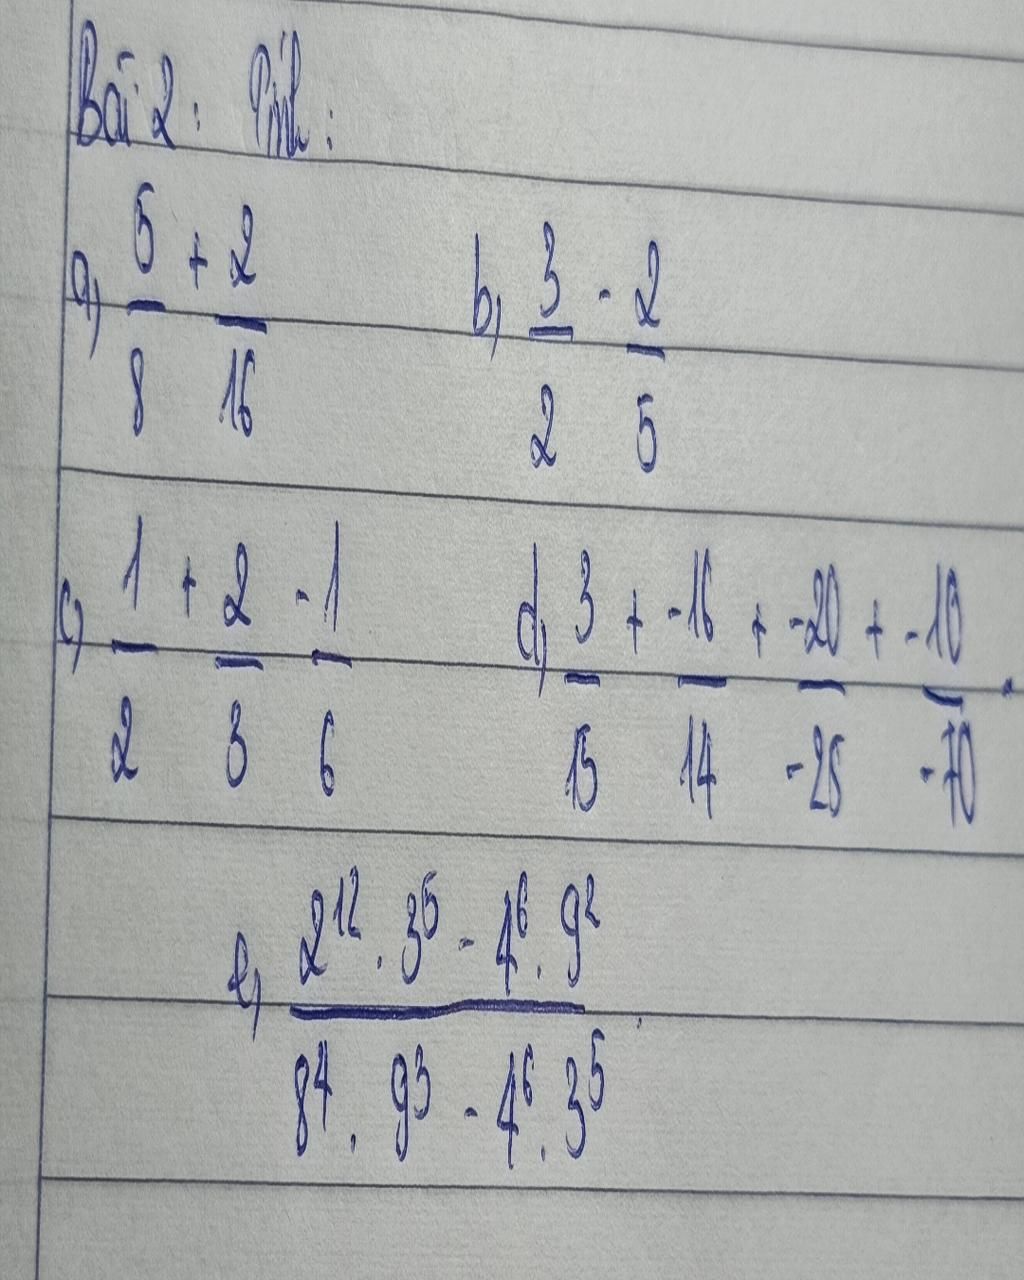 Bài 2: Tính:
a) 5/8 + 2/16 b) 3/2 - 2/5
c) 1/2 + 2/3 - 1/6 d) 3/15 + -16/14 + -20/-25 + -10/-70 .
e) (2^12 . 3^5 - 4^6 . 9^2)/(8^4 . 9^3 - 4^6 . 3^5)